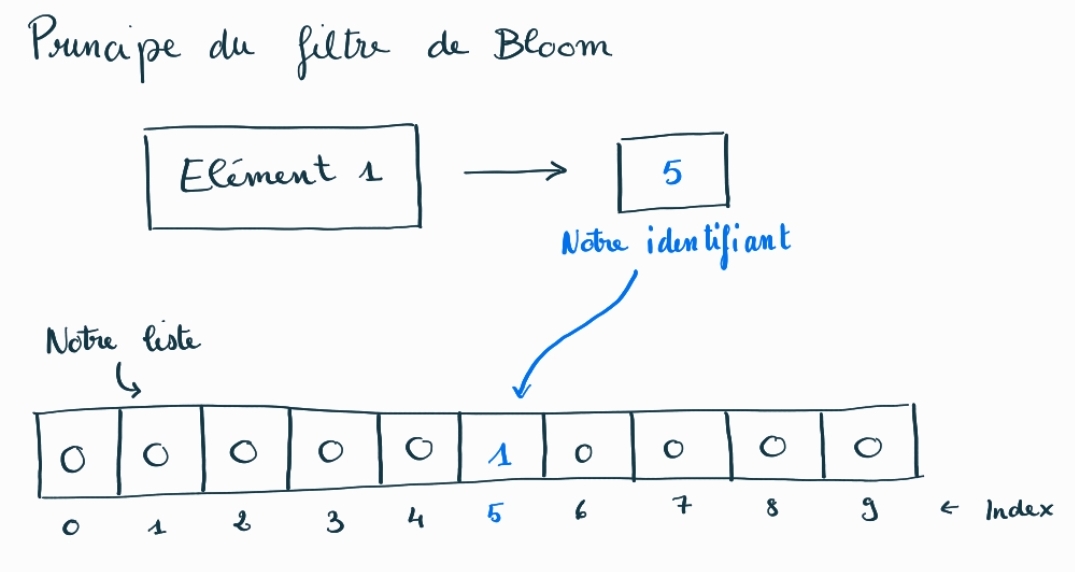 Principe du filtre de Bloom
Elément 1
5
Notre identifiant
Notre liste
0 0 0 0 0 1 0 0 0 0
0 1 2 3 4 5 6 7 8 9 ← Index